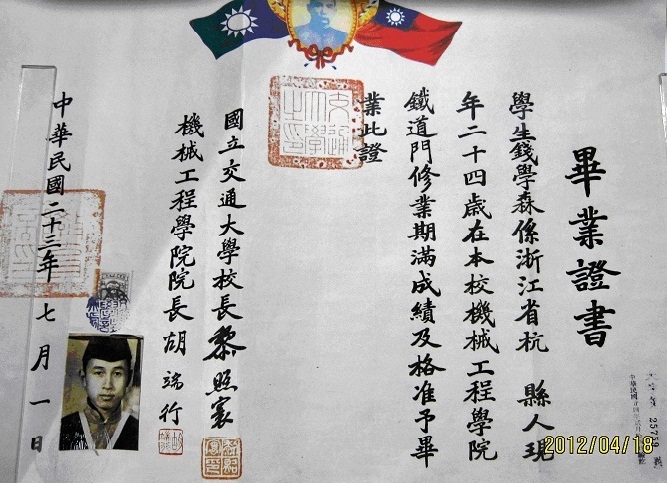 畢業證書
學生錢學森係浙江省杭 縣人現
年二十四歲在本校機械工程學院
鐵道門修業期滿成績及格准予畢
業此證
國立交通大學校長黎照寰
機械工程學院院長胡端行
中華民國二十三年 七月一日
2012/04/18